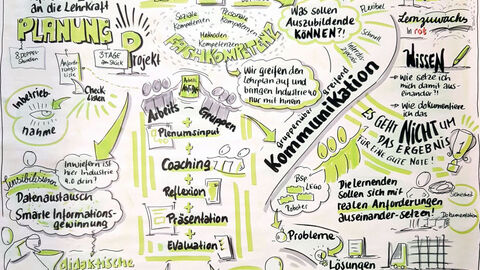 an die Lehrkraft
PLANUNG
Projekt
3 TAGE
am Stück
Check
listen
Inbetrieb-
nahme
Soziale
Kompetenzen
Personale
Kompetenzen
Methoden
Kompetenzen
FACHKOMPETENZ
Wir greifen den
Lehrplan auf und
bringen Industrie 4.0
nur mit hinein
Arbeits
Gruppen
Plenumsinput
+
Coaching
+
Reflexion
+
Präsentation
+
Evaluation
Inwiefern ist
hier Industrie
4.0 drin?
Sensibilisieren
Datenaustausch
Smarte Informations-
gewinnung
didaktische
Was sollen
Auszubildende
KÖNNEN?!
Flexibel
Schnell
Gruppenübergreifend
Kommunikation
Lernzuwachs
in rot
WISSEN
- Wie setze ich
mich damit aus-
einander?!
- Wie dokumentiere
ich das
ES GEHT NICHT UM
DAS ERGEBNIS
FÜR EINE GUTE NOTE!
BSP
LEGO
Roboter
Die Lernenden
sollen sich mit
realen Anforderungen
auseinander-setzen!
Sicherheit
Dokumentation
Probleme
Lösungen